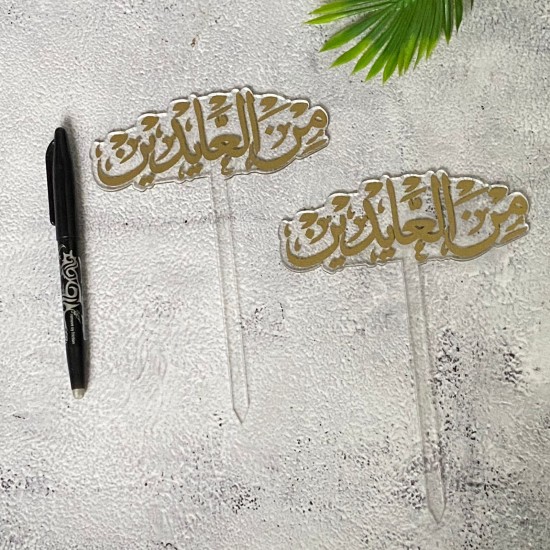 مِنَ العَايدين
مِنَ العَايدين